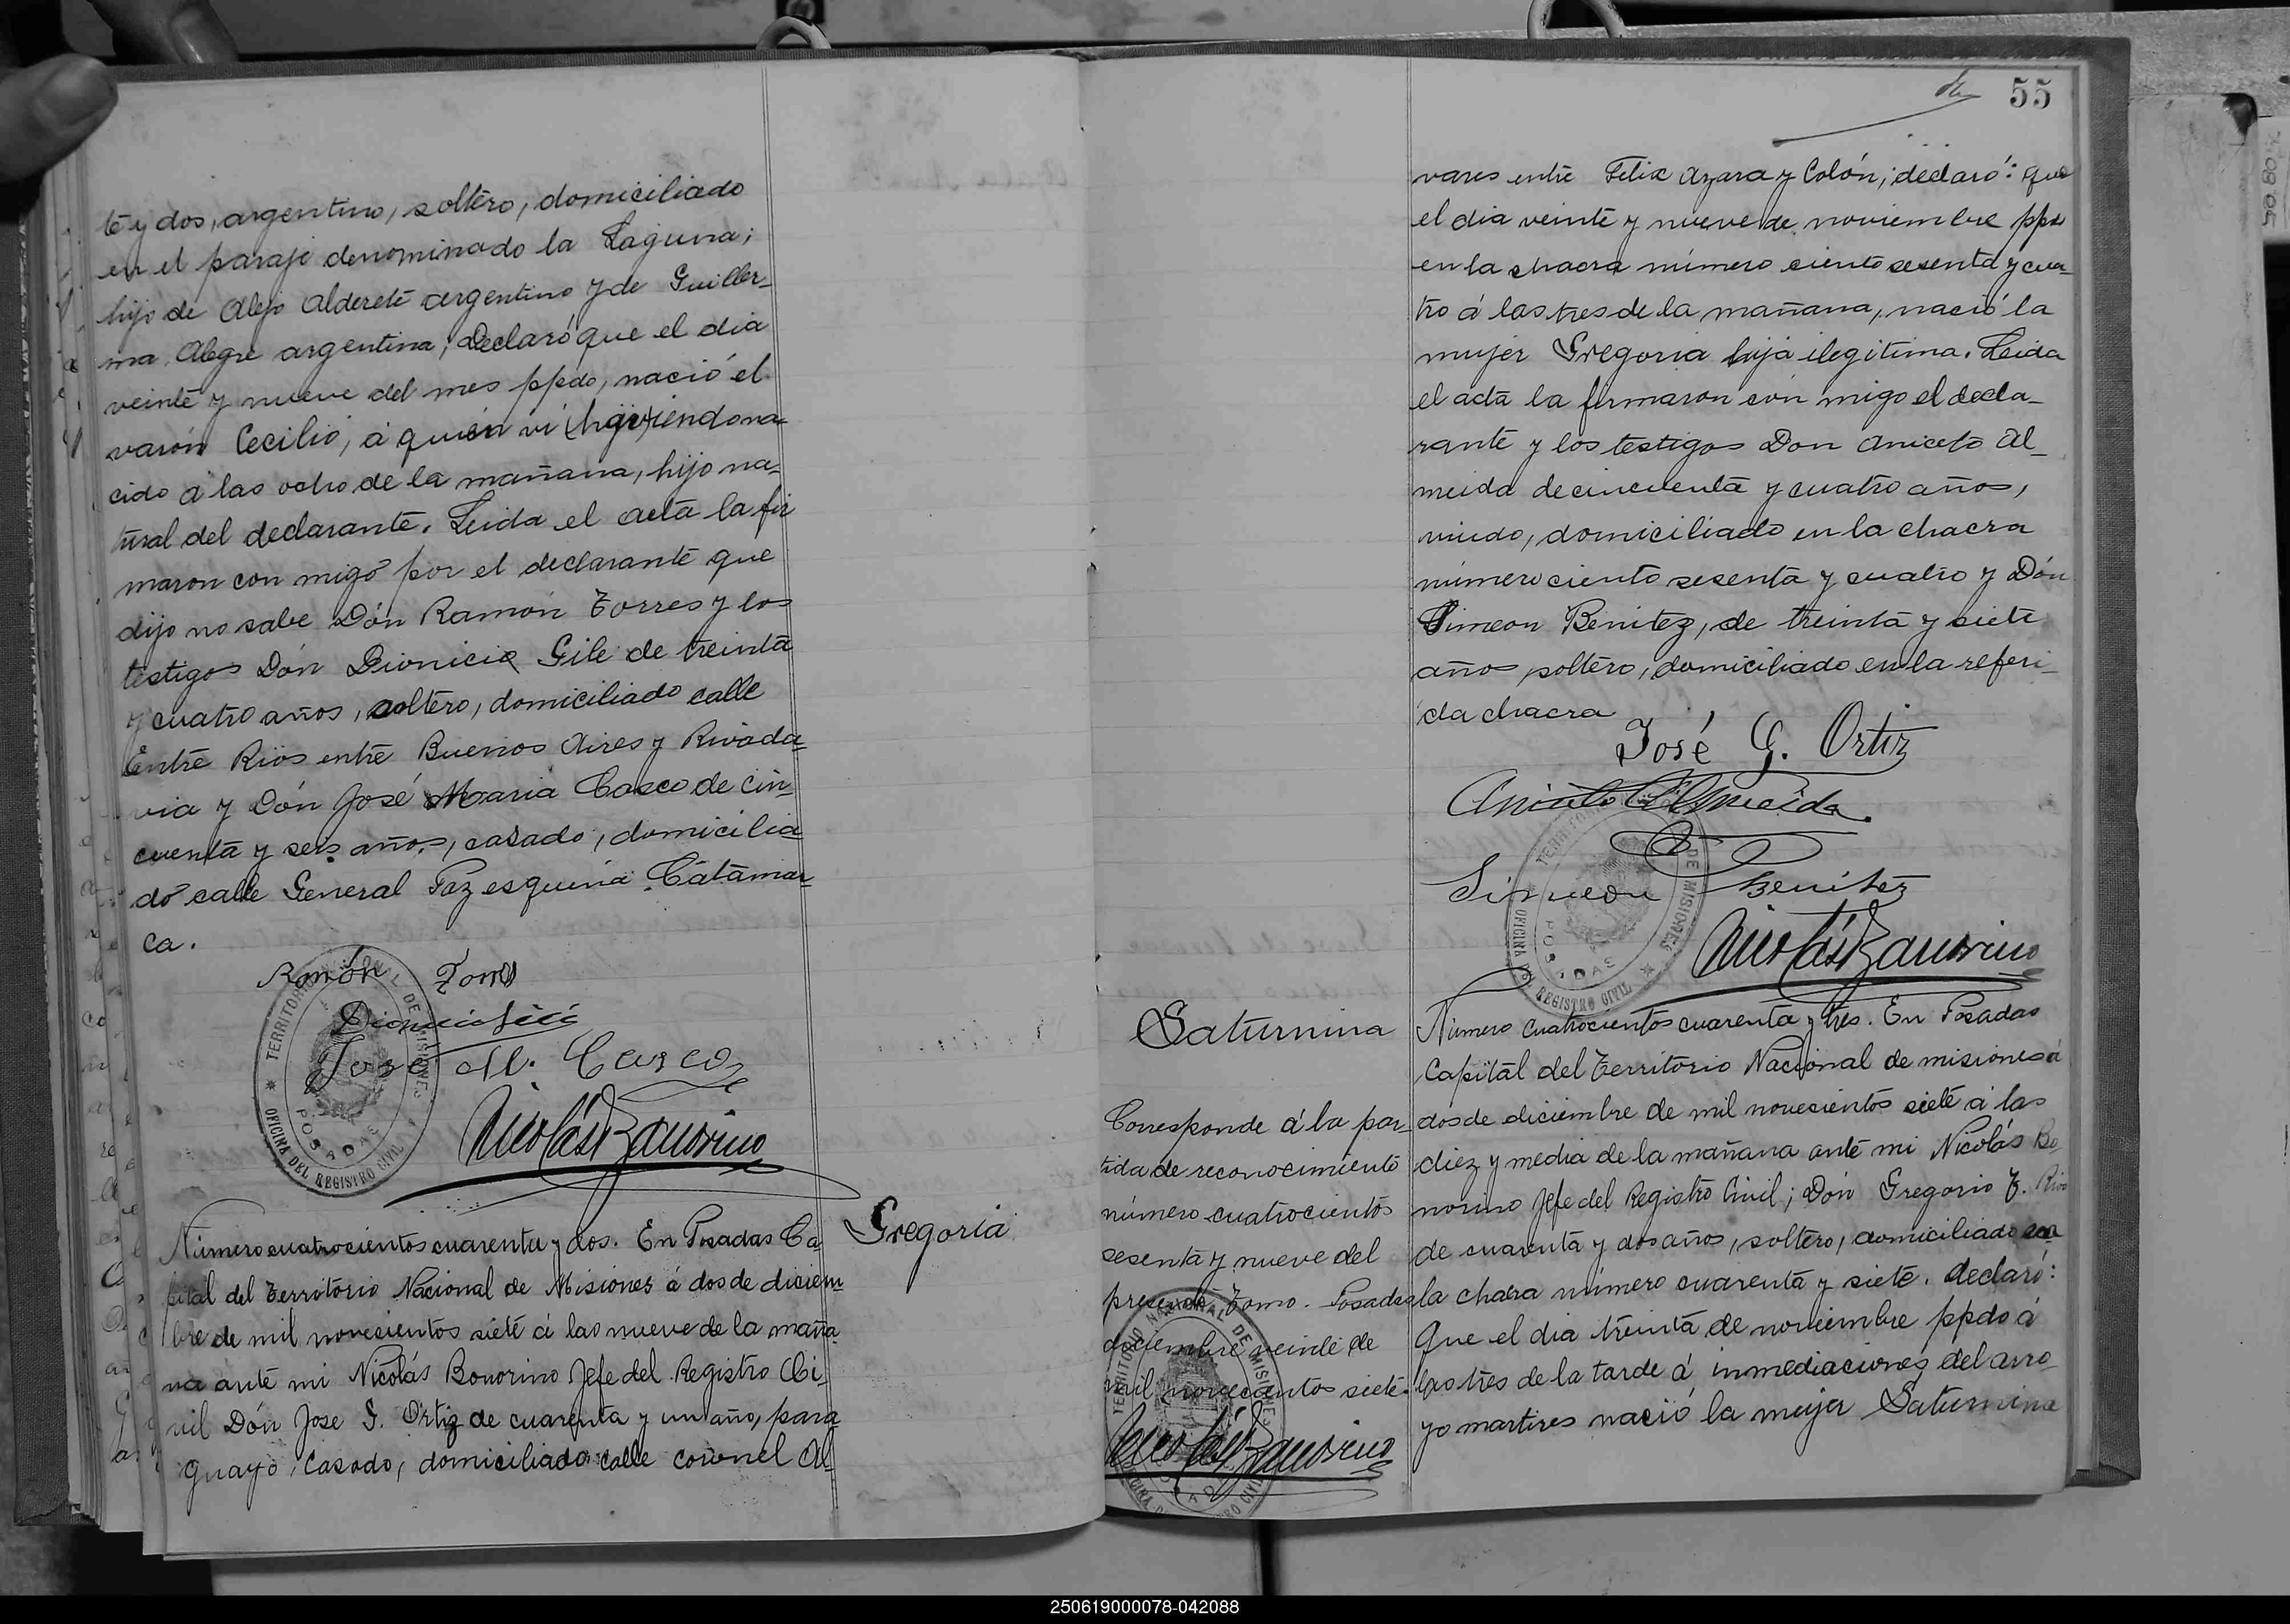 te y dos, argentino, soltero, domiciliado
en el paraje denominado la Laguna;
hijo de Alejo Alderete argentino y de Guiller-
ma Alegre argentina; Declaró que el dia
veinte y nueve del mes ppdo, nació el
varón Cecilio, á quien vi (hoy) siendo na-
cido á las ocho de la mañana, hijo na-
tural del declarante. Leida el acta la fir
maron con migo por el declarante que
dijo no sabe Dón Ramón Torres y los
testigos Dón Dionicio Gile de treinta
y cuatro años, soltero, domiciliado calle
Entre Rios entre Buenos Aires y Rivada-
via y Dón José Maria Casco de cin-
cuenta y seis años, casado, domicilia
do calle General Paz esquina Catamar-
ca.
Ramón Torres
José M. Casco
Nicolás Bonorino
TERRITORIO NACIONAL DE MISIONES
POSADAS
OFICINA DEL REGISTRO CIVIL
Gregoria
Número cuatrocientos cuarenta y dos. En Posadas Ca
pital del Territorio Nacional de Misiones á dos de diciem
bre de mil novecientos siete á las nueve de la maña
na ante mi Nicolás Bonorino Jefe del Registro Ci-
vil Dón Jose G. Ortiz de cuarenta y un año, para
guayo, casado, domiciliado calle coronel Al-
55
vares entre Felix Azara y Colón; declaró: que
el dia veinte y nueve de noviembre ppdo
en la chacra número ciento sesenta y cua-
tro á las tres de la mañana, nació la
mujer Gregoria hija ilegitima. Leida
el acta la firmaron con migo el decla-
rante y los testigos Don Aniceto Al-
meida de cincuenta y cuatro años,
viudo, domiciliado en la chacra
número ciento sesenta y cuatro y Dón
Simeon Benitez, de treinta y siete
años, soltero, domiciliado en la referi-
da chacra
José G. Ortiz
Aniceto Almeida.
Simeon Benitez
Nicolás Bonorino
TERRITORIO NACIONAL DE MISIONES
POSADAS
OFICINA DEL REGISTRO CIVIL
Saturnina
Número cuatrocientos cuarenta y tres. En Posadas
Capital del Territorio Nacional de misiones á
dos de diciembre de mil novecientos siete á las
diez y media de la mañana ante mi Nicolás Bo-
norino Jefe del Registro Civil; Dón Gregorio
de cuarenta y dos años, soltero, domiciliado en
la chacra número cuarenta y siete. declaró:
Que el dia treinta de noviembre ppdo á
las tres de la tarde á inmediaciones del arro-
yo martires nació la mujer Saturnina
Corresponde á la par-
tida de reconocimiento
número cuatrocientos
sesenta y nueve del
presente Tomo. Posadas
diciembre veinte de
mil novecientos siete.
Nicolás Bonorino
TERRITORIO NACIONAL DE MISIONES
250619000078-042088